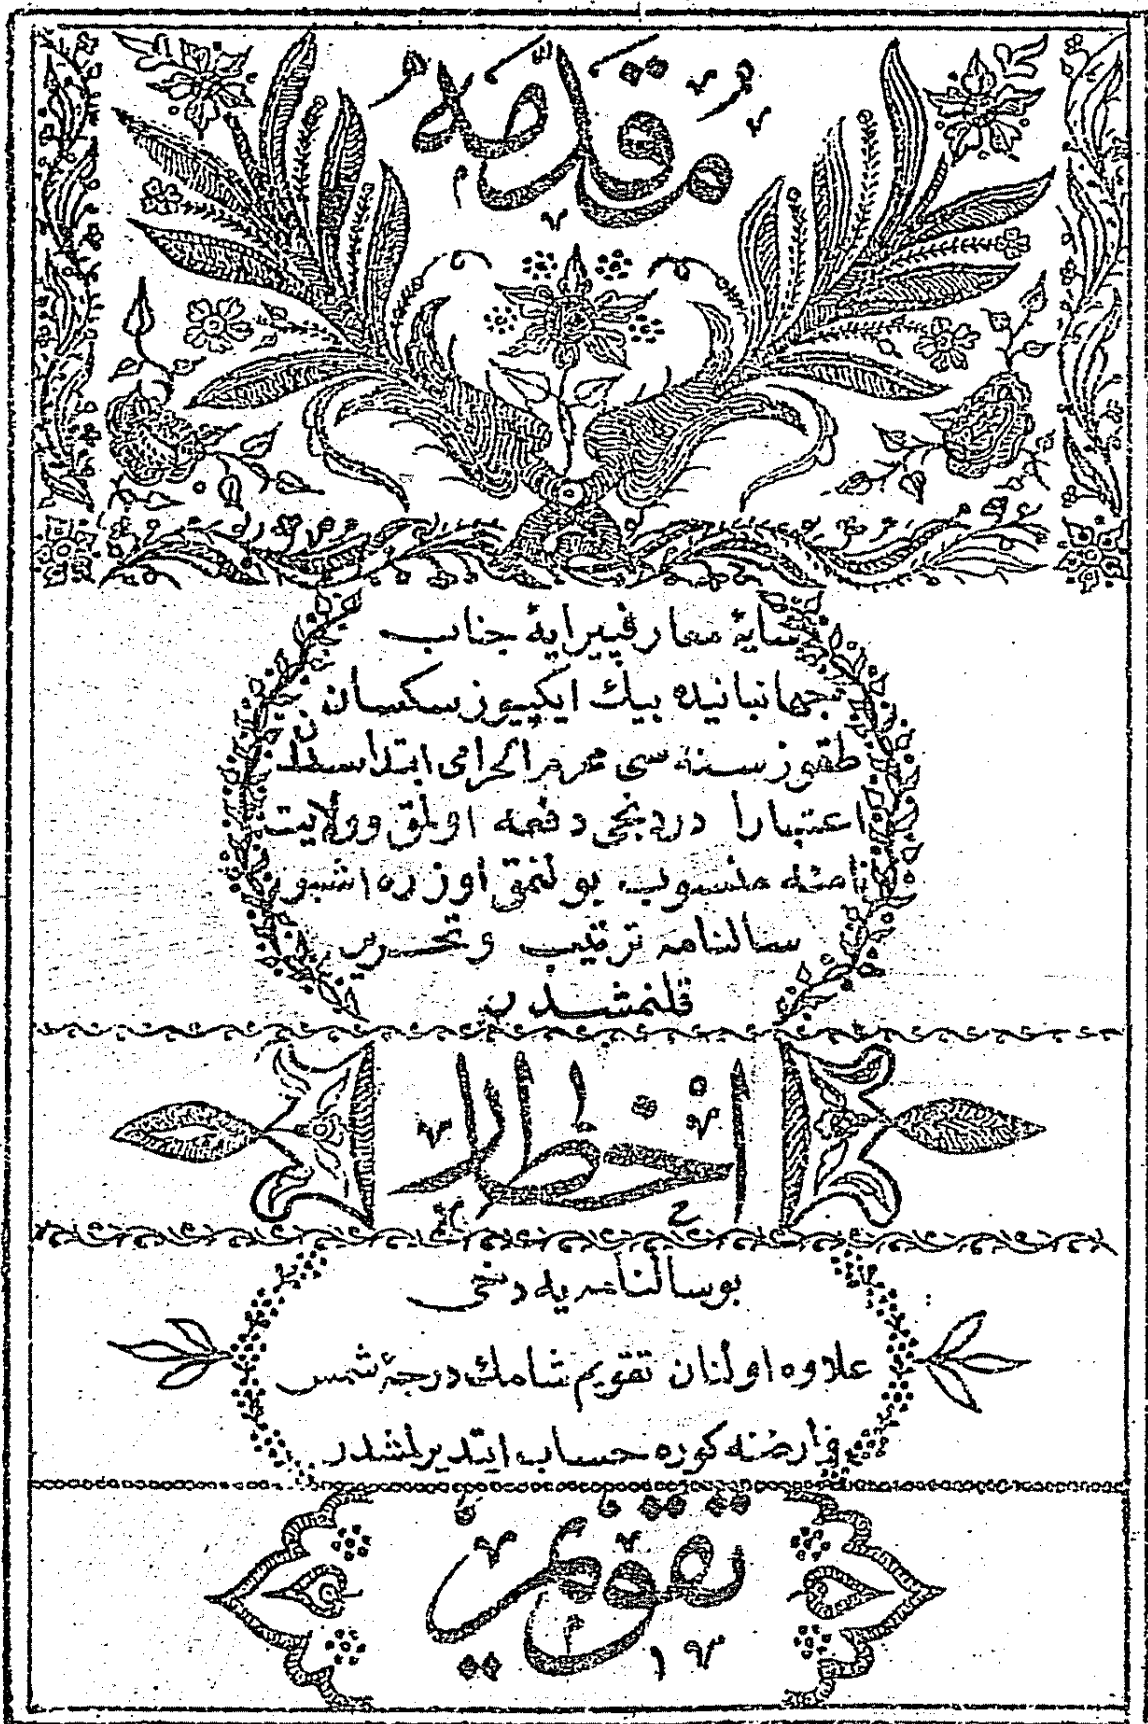 مقدمه
سایهٔ معارفپیرایهٔ جناب
جهانبانیده بیك ایکییوز سکسان
طقوز سنه سی محرم الحرامی ابتداسندن
اعتبارا دردنجی دفعه اولق وولایت
نامنه منسوب بولنمق اوزره اشبو
سالنامه ترتیب وتحریر
قلنمشدر
اخطار
بوسالنامه یه دخی
علاوه اولنان تقویم شامك درجهٔ شمس
وارضنه کوره حساب ایتدیرلمشدر
تقویم